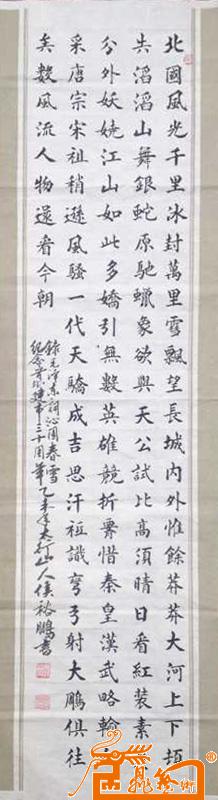 北國風光千里冰封萬里雪飄望長城內外惟餘莽莽大河上下頓
失滔滔山舞銀蛇原馳蠟象欲與天公試比高須晴日看紅裝素
分外妖娆江山如此多嬌引無數英雄競折要惜秦皇漢武略輸
采唐宗宋祖稍遜風騷一代天驕成吉思汗祗識彎弓射大鵰俱往
矣數風流人物還看今朝
錄毛澤東詞沁園春雪
紀念三十周年乙未年太行山人侯裕鵬書